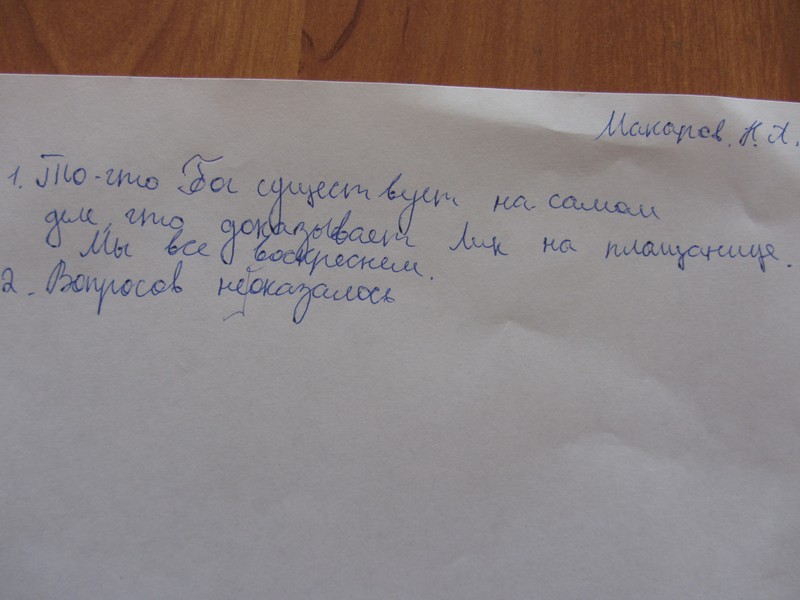 Макаров. Н. А.
1. То-что Бог существует на самом
деле, что доказывает Лик на плащанице.
Мы все воскреснем.
2. Вопросов не оказалось